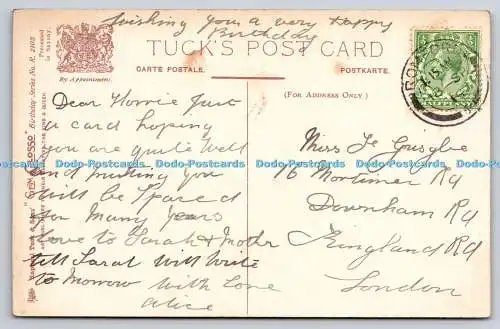 Wishing you a very Happy
Birthday
TUCK'S POST CARD
CARTE POSTALE.
POSTKARTE.
By Appointment.
(FOR ADDRESS ONLY.)
Dear Florrie Just
a card hoping
you are quite well
and trusting you
will be spared
for many years
love to Sarah & Mother
tell Sarah will write
to morrow with love
Alice
Miss F
76 Mortimer Rd
Downham Rd
Kingsland Rd
London
"GEM GLOSSO" Birthday Series No.
Dodo-Postcards Dodo-Postcards Dodo-Postcards Dodo-Postcards Dodo-Postcards